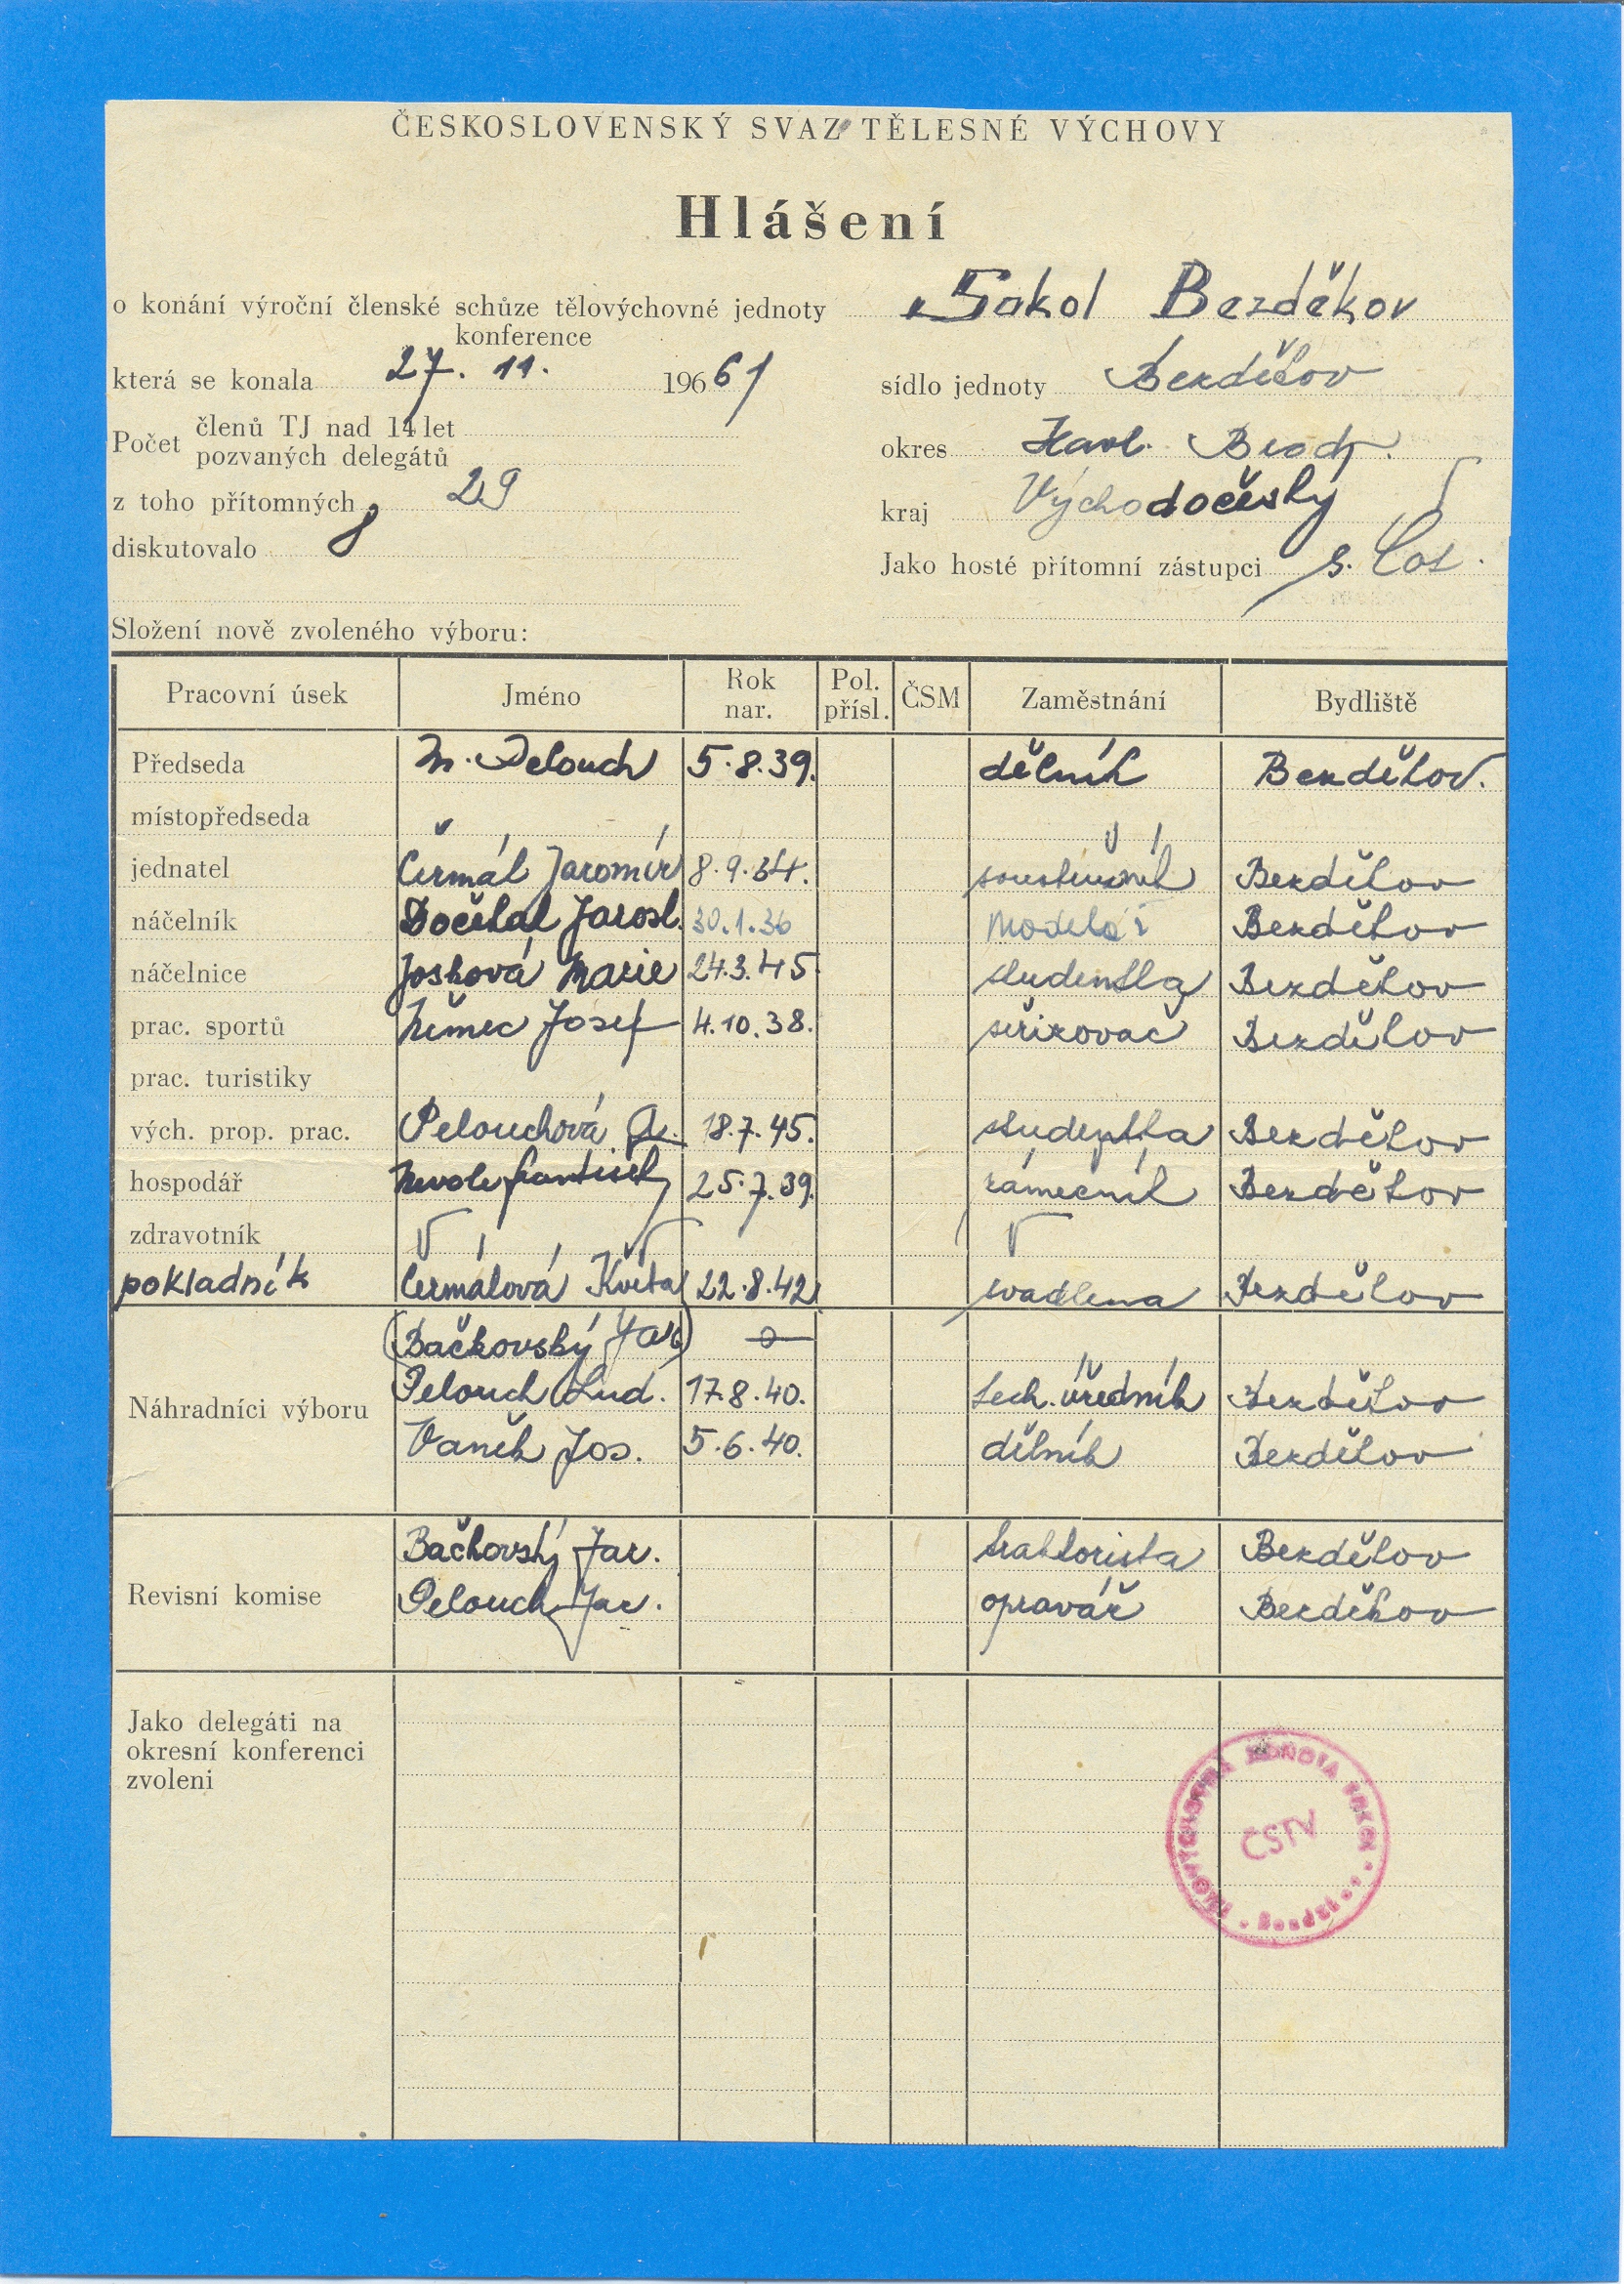 ČESKOSLOVENSKÝ SVAZ TĚLESNÉ VÝCHOVY
Hlášení
o konání výroční členské schůze tělovýchovné jednoty Sokol Bezděkov
konference
která se konala 27. 11. 196 61 sídlo jednoty Bezděkov
Počet členů TJ nad 14 let
pozvaných delegátů
okres Havl. Brod.
z toho přítomných 29 kraj Východočeský
diskutovalo 8 Jako hosté přítomní zástupci s.
Složení nově zvoleného výboru:
Pracovní úsek Jméno Rok nar. Pol. přísl. ČSM Zaměstnání Bydliště
Předseda Pelouch 5.8.39. dělník Bezděkov.
místopředseda
jednatel Čermák Jaromír 8.9.34. soustružník Bezděkov
náčelník Dočekal Jarosl. 30.1.36 modelář Bezděkov
náčelnice Josková Marie 24.3.45. studentka Bezděkov
prac. sportů Němec Josef 4.10.38. seřizovač Bezděkov
prac. turistiky
vých. prop. prac. Pelouchová 18.7.45. studentka Bezděkov
hospodář Nevole František 25.7.39. zámečník Bezděkov
zdravotník
pokladník Čermáková Květa 22.8.42 švadlena Bezděkov
(Bačkovský Jar.)
Náhradníci výboru Pelouch Lud. 17.8.40. tech. úředník Bezděkov
Vaněk Jos. 5.6.40. dělník Bezděkov
Revisní komise Bačkovský Jar. traktorista Bezděkov
Pelouch Jar. opravář Bezděkov
Jako delegáti na
okresní konferenci
zvoleni
TĚLOVÝCHOVNÁ JEDNOTA
ČSTV